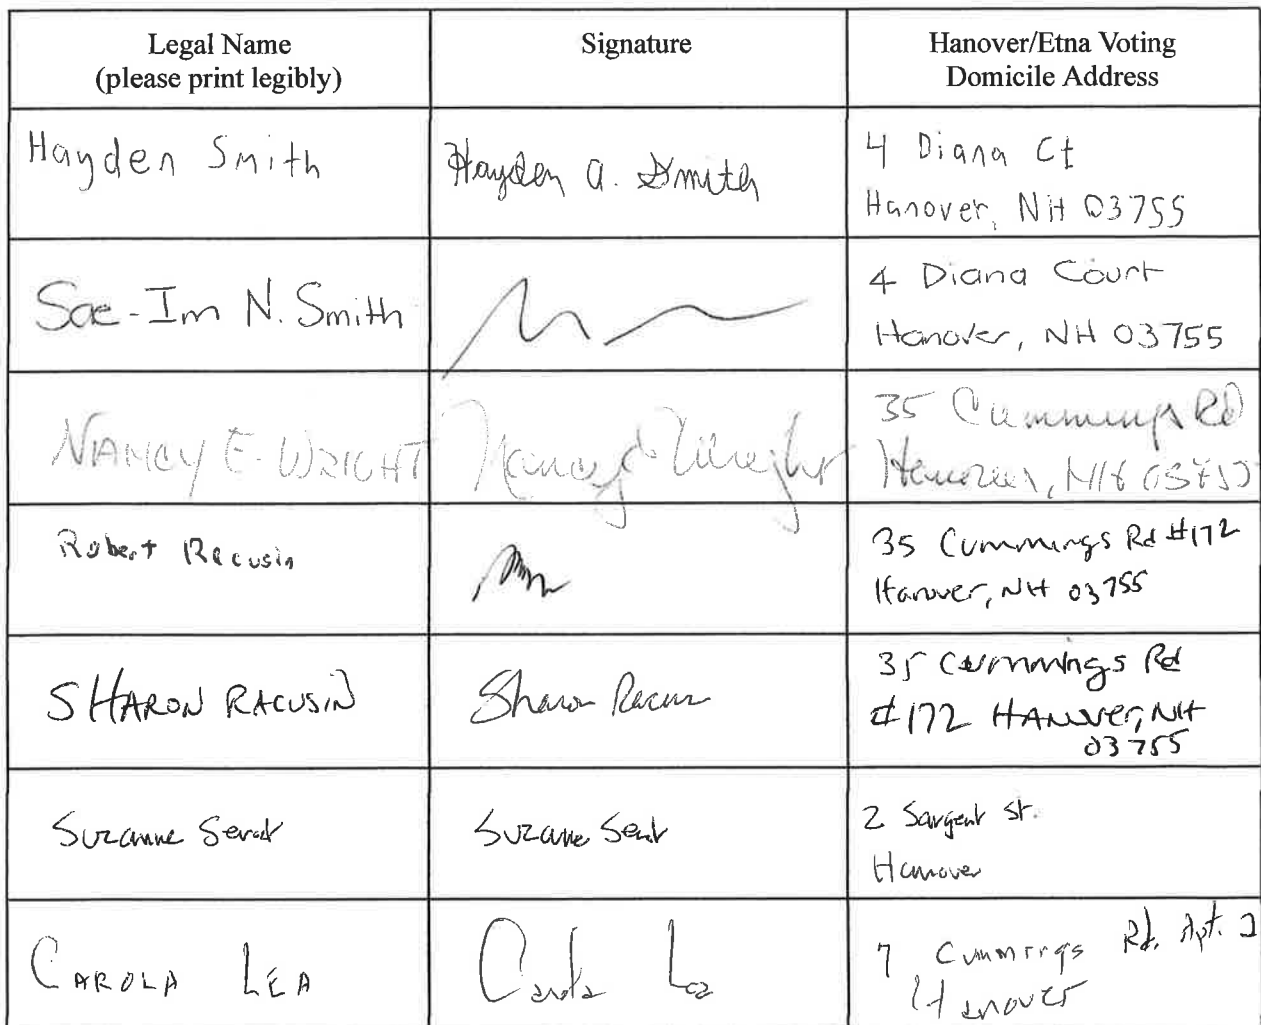 Legal Name
(please print legibly)
Signature
Hanover/Etna Voting
Domicile Address
Hayden Smith
Hayden A. Smith
4 Diana Ct
Hanover, NH 03755
Sae-Im N. Smith
4 Diana Court
Hanover, NH 03755
NANCY E. WRIGHT
Nancy E Wright
35 Cummings Rd
Hanover, NH 03755
Robert Racusin
35 Cummings Rd #172
Hanover, NH 03755
SHARON RACUSIN
Sharon Racusin
35 Cummings Rd
#172 HANOVER, NH
03755
Suzanne Serat
Suzanne Serat
2 Sargent St.
Hanover
CAROLA LEA
Carola Lea
7 Cummings Rd. Apt. 2
Hanover